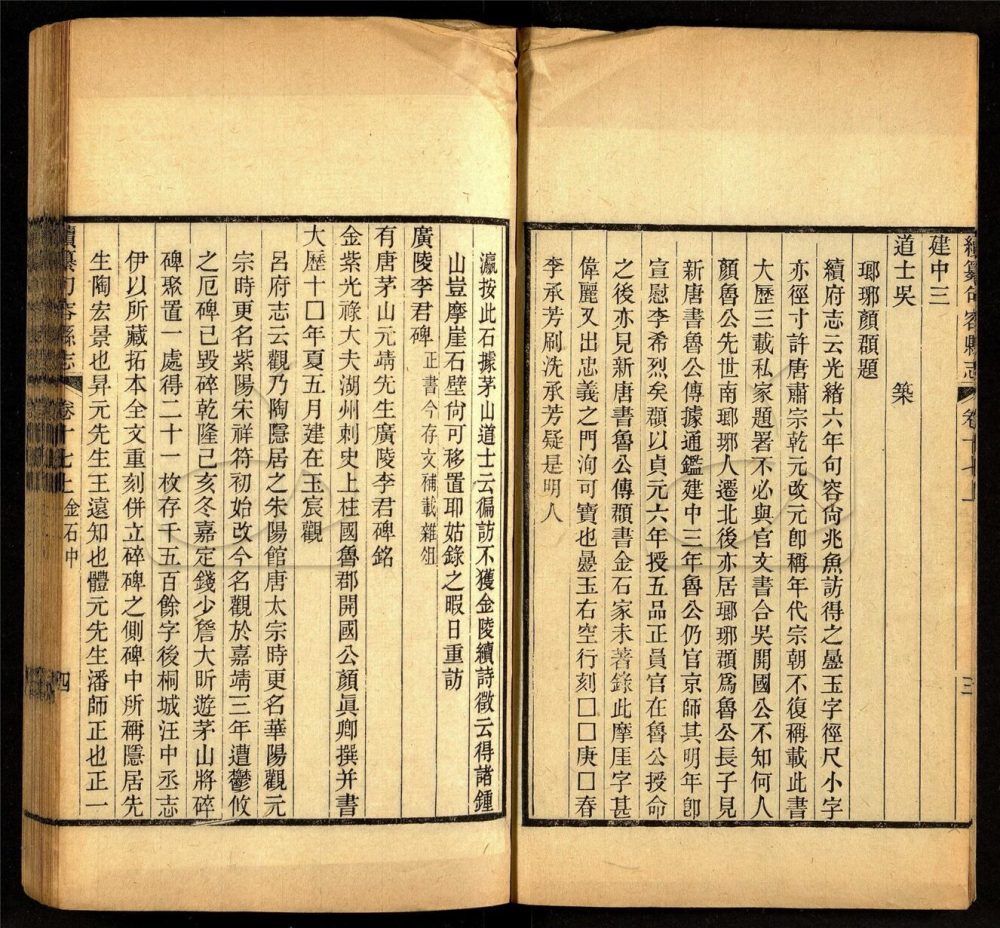 續纂句容縣志 卷十七上 三
建中三
道士吳 築
瑯琊顏頵題
續府志云光緒六年句容尙兆魚訪得之壘玉字徑尺小字
亦徑寸許唐肅宗乾元改元卽稱年代宗朝不復稱載此書
大歷三載私家題署不必與官文書合吳開國公不知何人
顏魯公先世南瑯琊人遷北後亦居瑯琊頵爲魯公長子見
新唐書魯公傳據通鑑建中三年魯公仍官京師其明年卽
宣慰李希烈矣頵以貞元六年授五品正員官在魯公授命
之後亦見新唐書魯公傳頵書金石家未著錄此摩厓字甚
偉麗又出忠義之門洵可寶也壘玉右空行刻囗囗庚囗春
李承芳刷洗承芳疑是明人
瀛按此石據茅山道士云徧訪不獲金陵續詩徵云得諸鍾
山豈摩崖石壁尙可移置耶姑錄之暇日重訪
廣陵李君碑 正書今存文補載雜俎
有唐茅山元靖先生廣陵李君碑銘
金紫光祿大夫湖州刺史上柱國魯郡開國公顏眞卿撰并書
大歷十囗年夏五月建在玉宸觀
呂府志云觀乃陶隱居之朱陽館唐太宗時更名華陽觀元
宗時更名紫陽宋祥符初始改今名觀於嘉靖三年遭鬱攸
之厄碑已毀碎乾隆己亥冬嘉定錢少詹大昕遊茅山將碎
碑聚置一處得二十一枚存千五百餘字後桐城汪中丞志
伊以所藏拓本全文重刻併立碎碑之側碑中所稱隱居先
生陶宏景也昇元先生王遠知也體元先生潘師正也正一
續纂句容縣志 卷十七上金石中 四